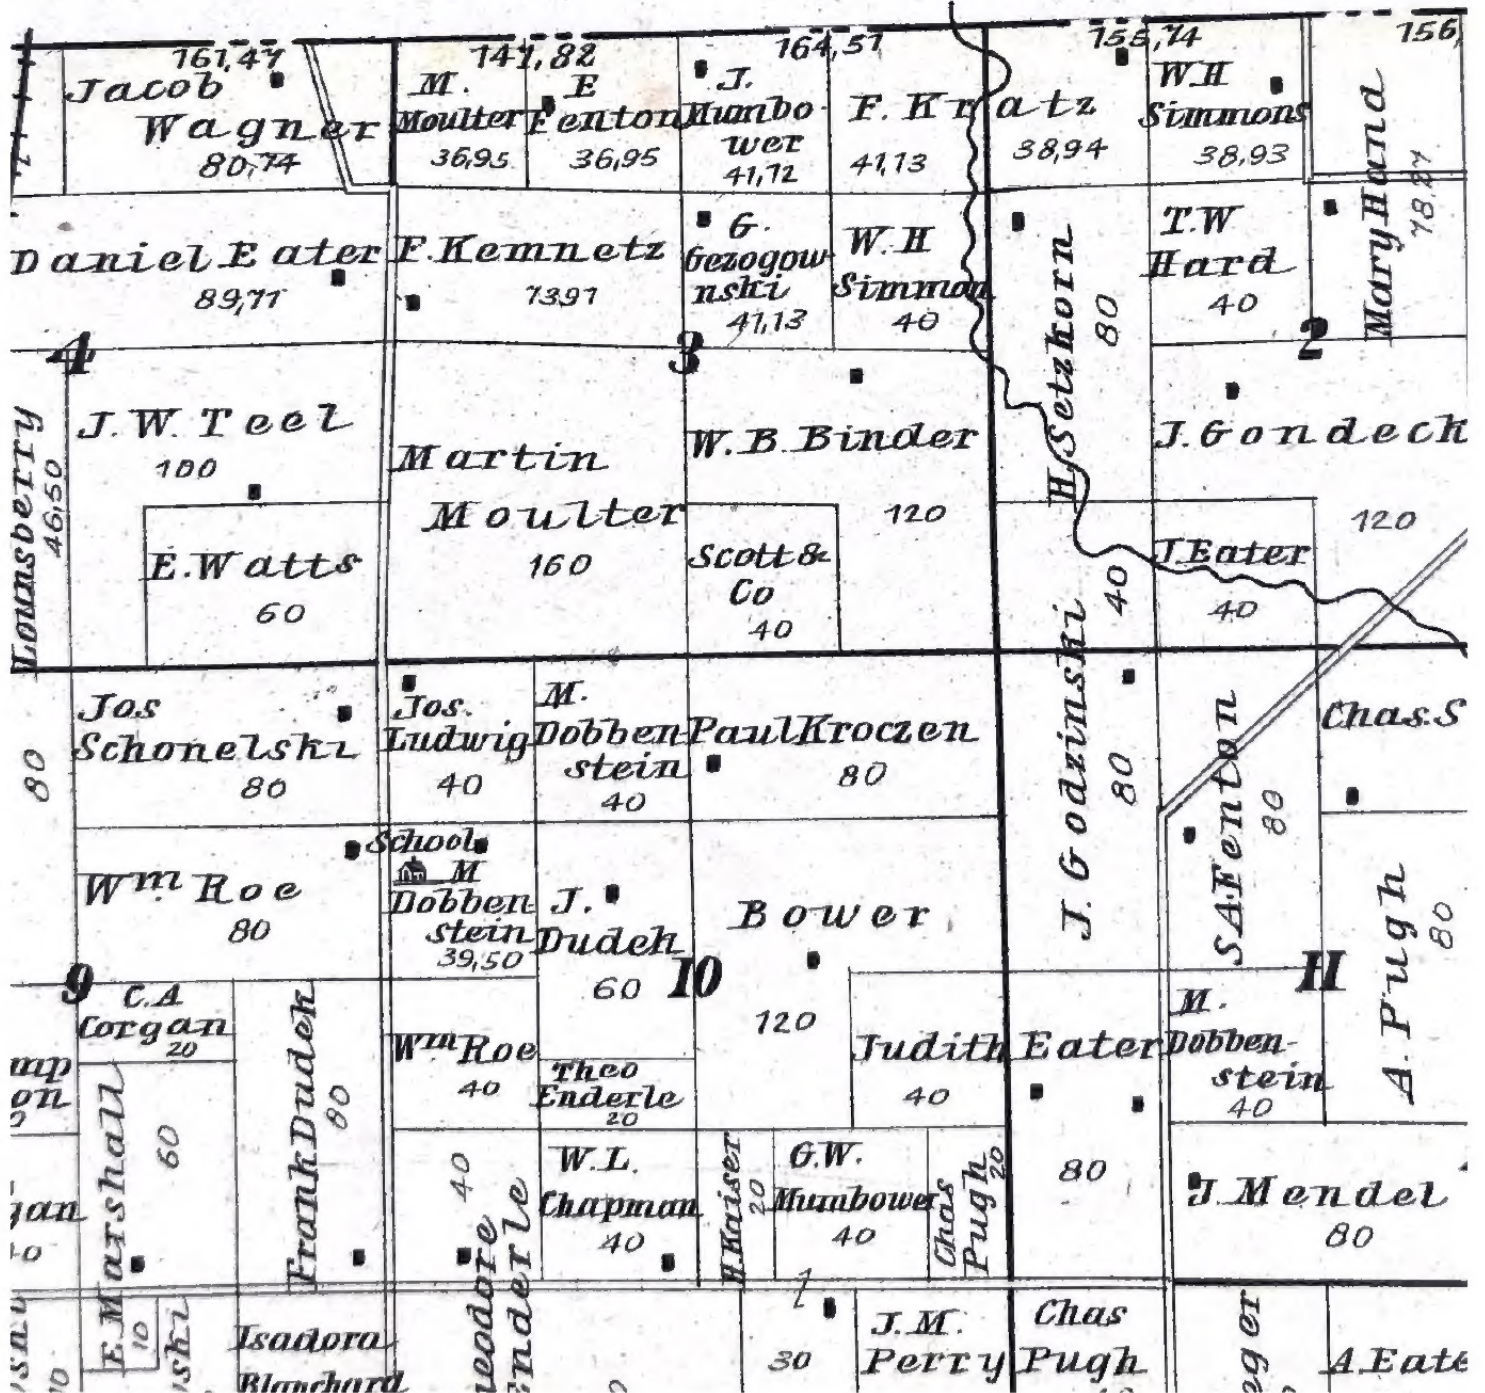 161,47
141,82
164,51
155,74
156,
Jacob
Wagner
80,74
M.
Moulter
36,95
E
Fenton
36,95
J.
Mumbo-
wer
41,12
F. Kratz
41,13
38,94
W.H
Simmons
38,93
Mary Hand
78,27
Daniel Eater
89,71
F. Kemnetz
73,97
G.
Gezogow
nski
41,13
W.H
Simmon
40
H. Setzkorn
80
T.W
Hard
40
4
3
2
Lounsberry
46,50
J.W. Teel
100
Martin
Moulter
160
W.B. Binder
120
J. Gondeck
120
E. Watts
60
Scott &
Co
40
40
J. Eater
40
80
Jos
Schonelski
80
Jos.
Ludwig
40
M.
Dobben
stein
40
Paul Kroczen
80
J. Godzinski
80
S.A Fenton
80
Chas. S
Wm Roe
80
School
M
Dobben
stein
39,50
J.
Dudek
60
Bower
120
A. Pugh
80
9
10
11
C.A
Corgan
20
Frank Dudek
80
Wm Roe
40
Theo
Enderle
20
Judith Eater
40
80
M.
Dobben-
stein
40
mp
on
E. Marshall
60
10
gan
40
Theodore
Enderle
W.L.
Chapman
40
H. Kaiser
20
G.W.
Mumbower
40
Chas
Pugh
20
J. Mendel
80
ski
Isadora
Blanchard
30
J.M.
Perry
Chas
Pugh
ger
A. Eate